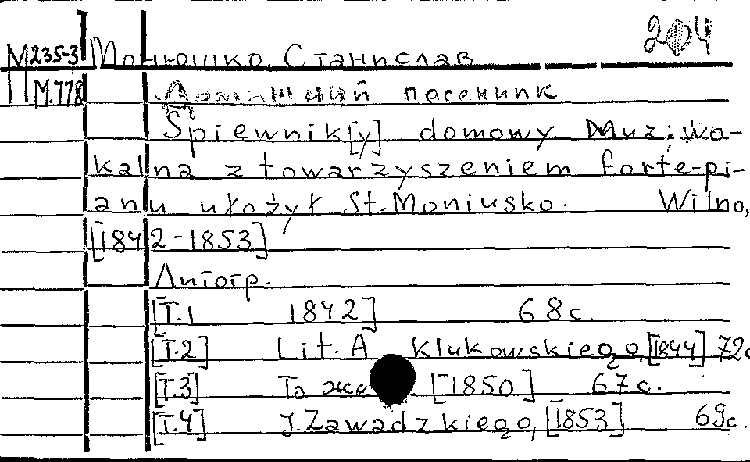 М235-3 Монюшко, Станислав 204
М.778 Домашний песенник
Śpiewnik[y] domowy Muz: wo-
kalna z towarzyszeniem forte-pi-
anu ułożył St. Moniusko. Wilno,
[1842-1853]
Литогр.
[T.1 1842] 68с.
[T.2] Lit. A Klukowskiego, [1844] 72с
[T.3] То же [1850] 67с.
[T.4] J. Zawadzkiego, [1853] 69с.